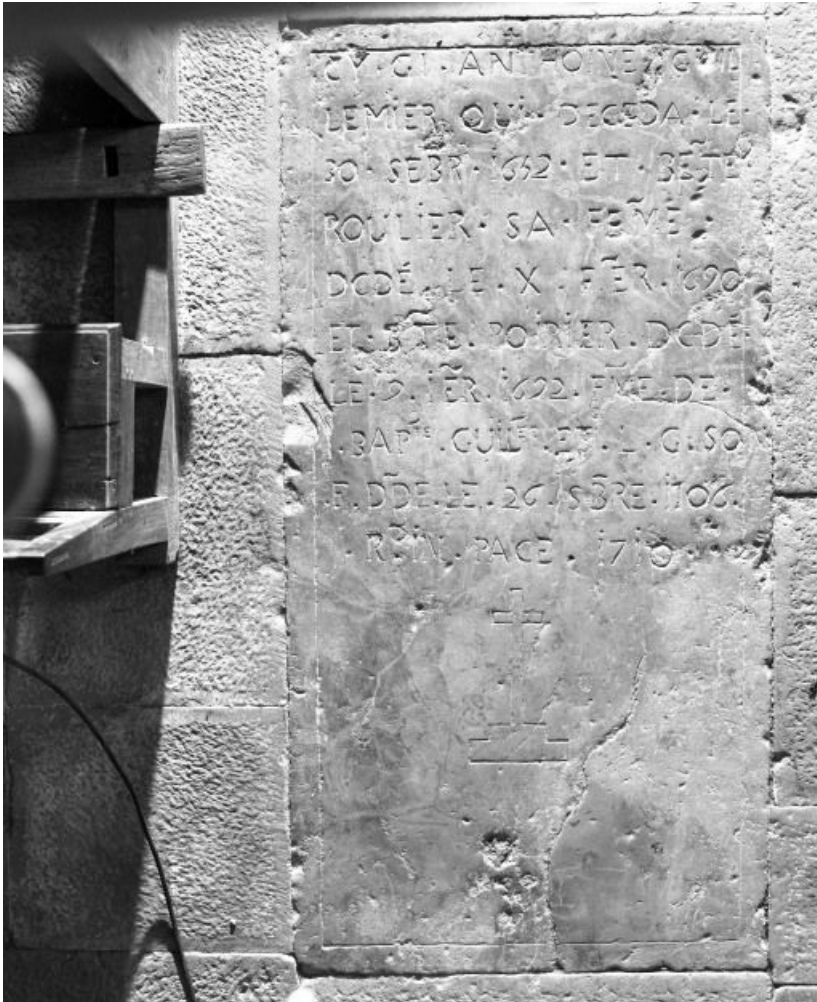 CY · GI · ANTHOINE · GUIL
LEMIER · QUI · DECEDA · LE ·
30 · SEBR · 1652 · ET · BE͠TE
ROULIER · SA · FE͠ME ·
DCDÉ · LE · X · F͠ER · 1690
ET · B͠TE · POIRIER · DCDÉ
LE · 9 · I͠ER · 1692 · F͠ME · DE ·
· BAPte · ET · L · G · SO
F · D͠DE · LE · 26 · 8BRE · 1706 ·
· PACE · 1710 ·